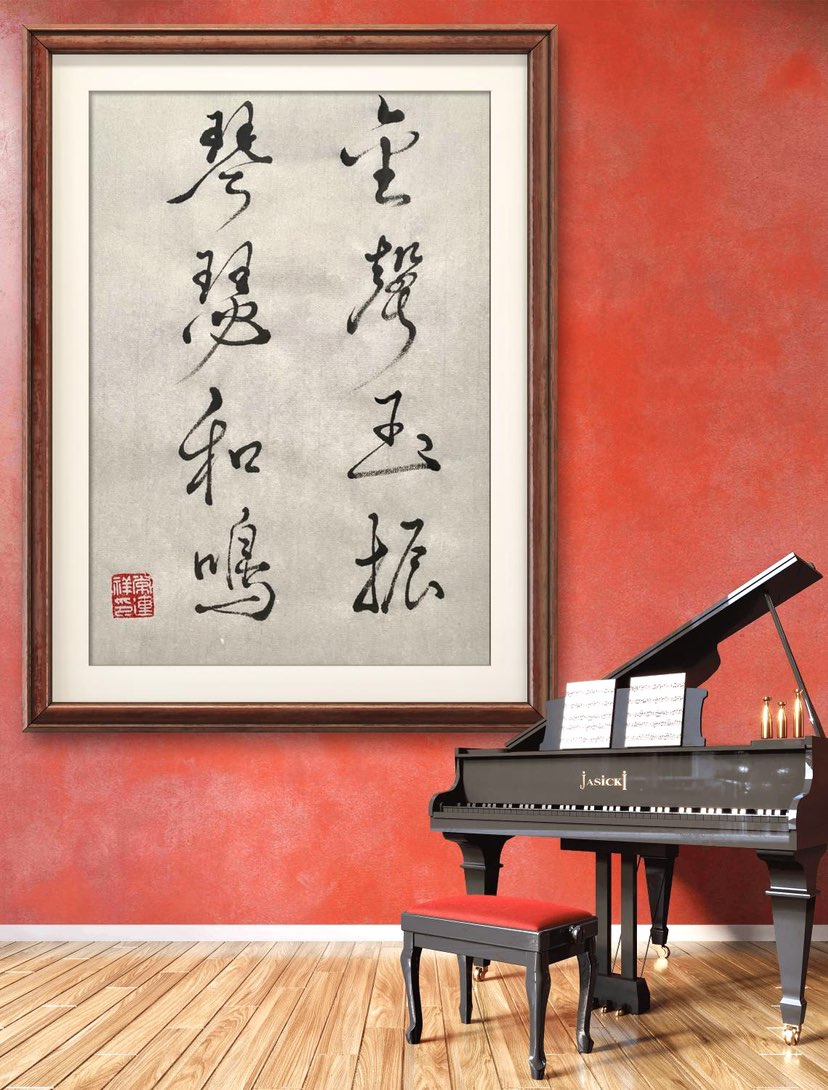 金聲玉振
琴瑟和鳴
常運祥印
JASICKI